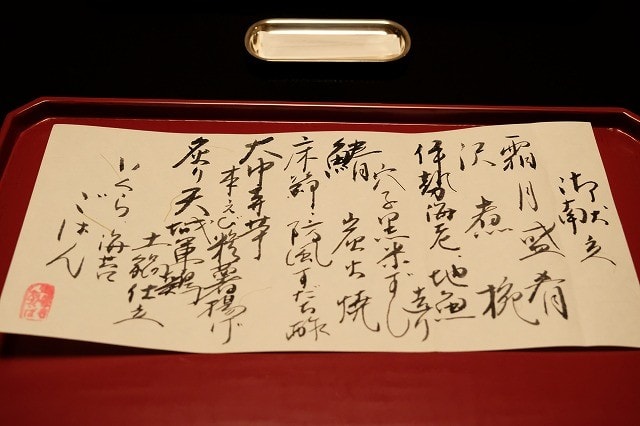 御献立
霜月盛肴
沢煮椀
伊勢海老、地魚造り
穴子黒米ずし
鰆炭火焼
床節、防風すだち酢
大中寺芋
車えび糝薯揚げ
炙り天城軍鶏
土鍋仕立
いくら海苔
ごはん